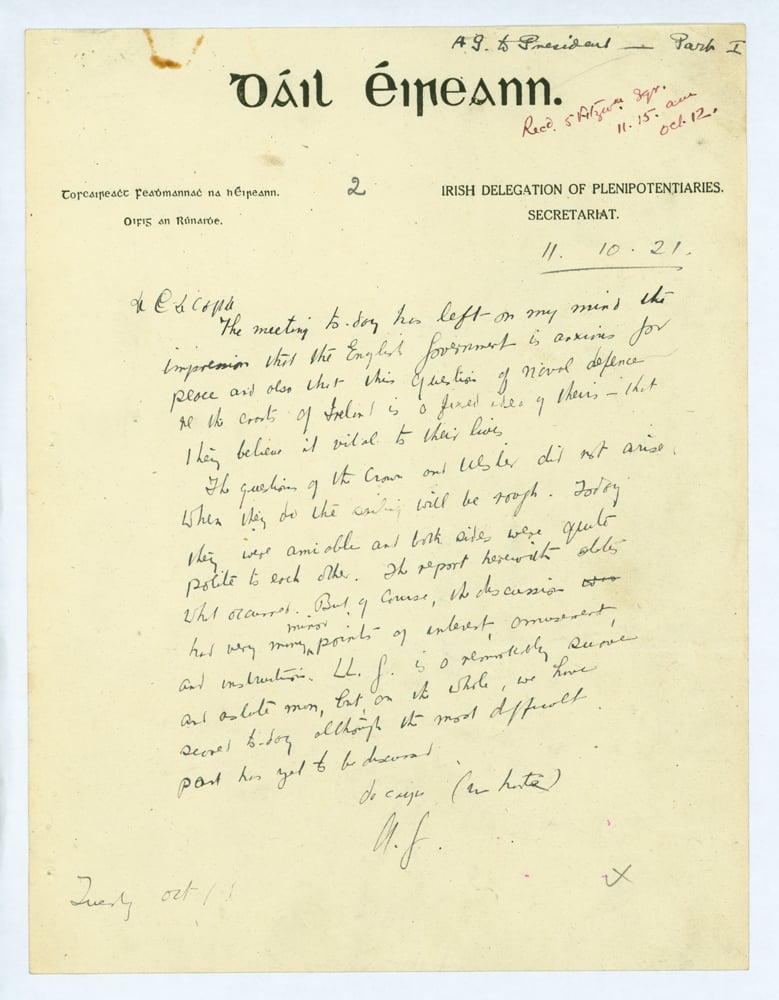 A G. to President — Part I
Dáil Éireann.
Recd. 5 Fitzwm Sqr.
11.15. am
Oct. 12.
Toscaireaċt Feaḋmannaċ na hÉireann.
Oifig an Rúnaiḋe.
2
IRISH DELEGATION OF PLENIPOTENTIARIES.
SECRETARIAT.
11. 10. 21.
A
The meeting to-day has left on my mind the
impression that the English Government is anxious for
peace and also that this question of Naval defence
re the coasts of Ireland is a fixed idea of theirs – that
they believe it vital to their lives
The questions of the Crown and Ulster did not arise.
When they do the sailing will be rough. Today
they were amiable and both sides were quite
polite to each other. The report herewith states
what occurred. But of course, the discussion was
had very many minor points of interest, amusement,
and instruction. Ll. G. is a remarkably suave
and astute man, but, on the whole, we have
scored to-day although the most difficult
part has yet to be discussed.
do
A. G.
Tuesday Oct 11
X